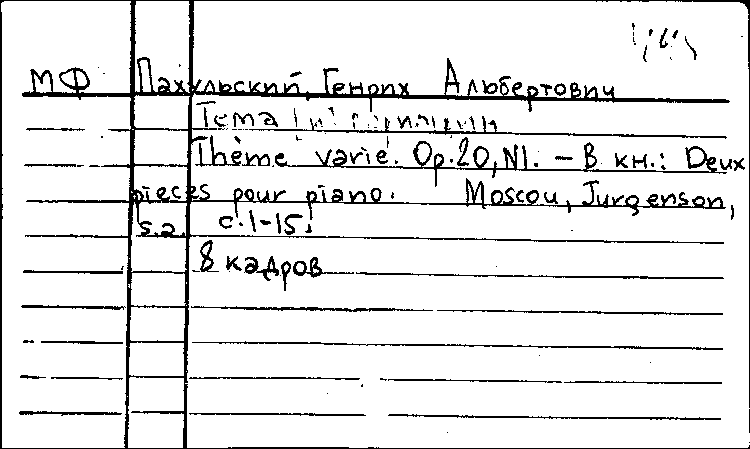 МФ Пахульский, Генрих Альбертович
Тема
Thème varié. Op.20, N1. – В кн.: Deux
pieces pour piano. Moscou, Jurgenson,
s.a. c.1-15.
8 кадров